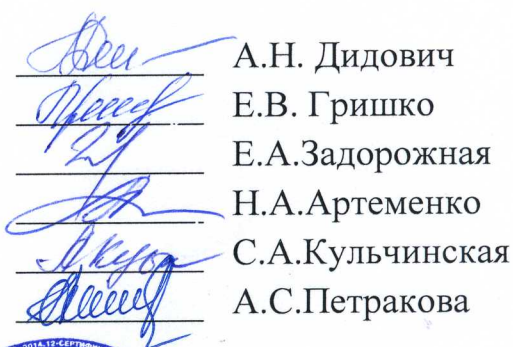 А.Н. Дидович
Е.В. Гришко
Е.А.Задорожная
Н.А.Артеменко
С.А.Кульчинская
А.С.Петракова